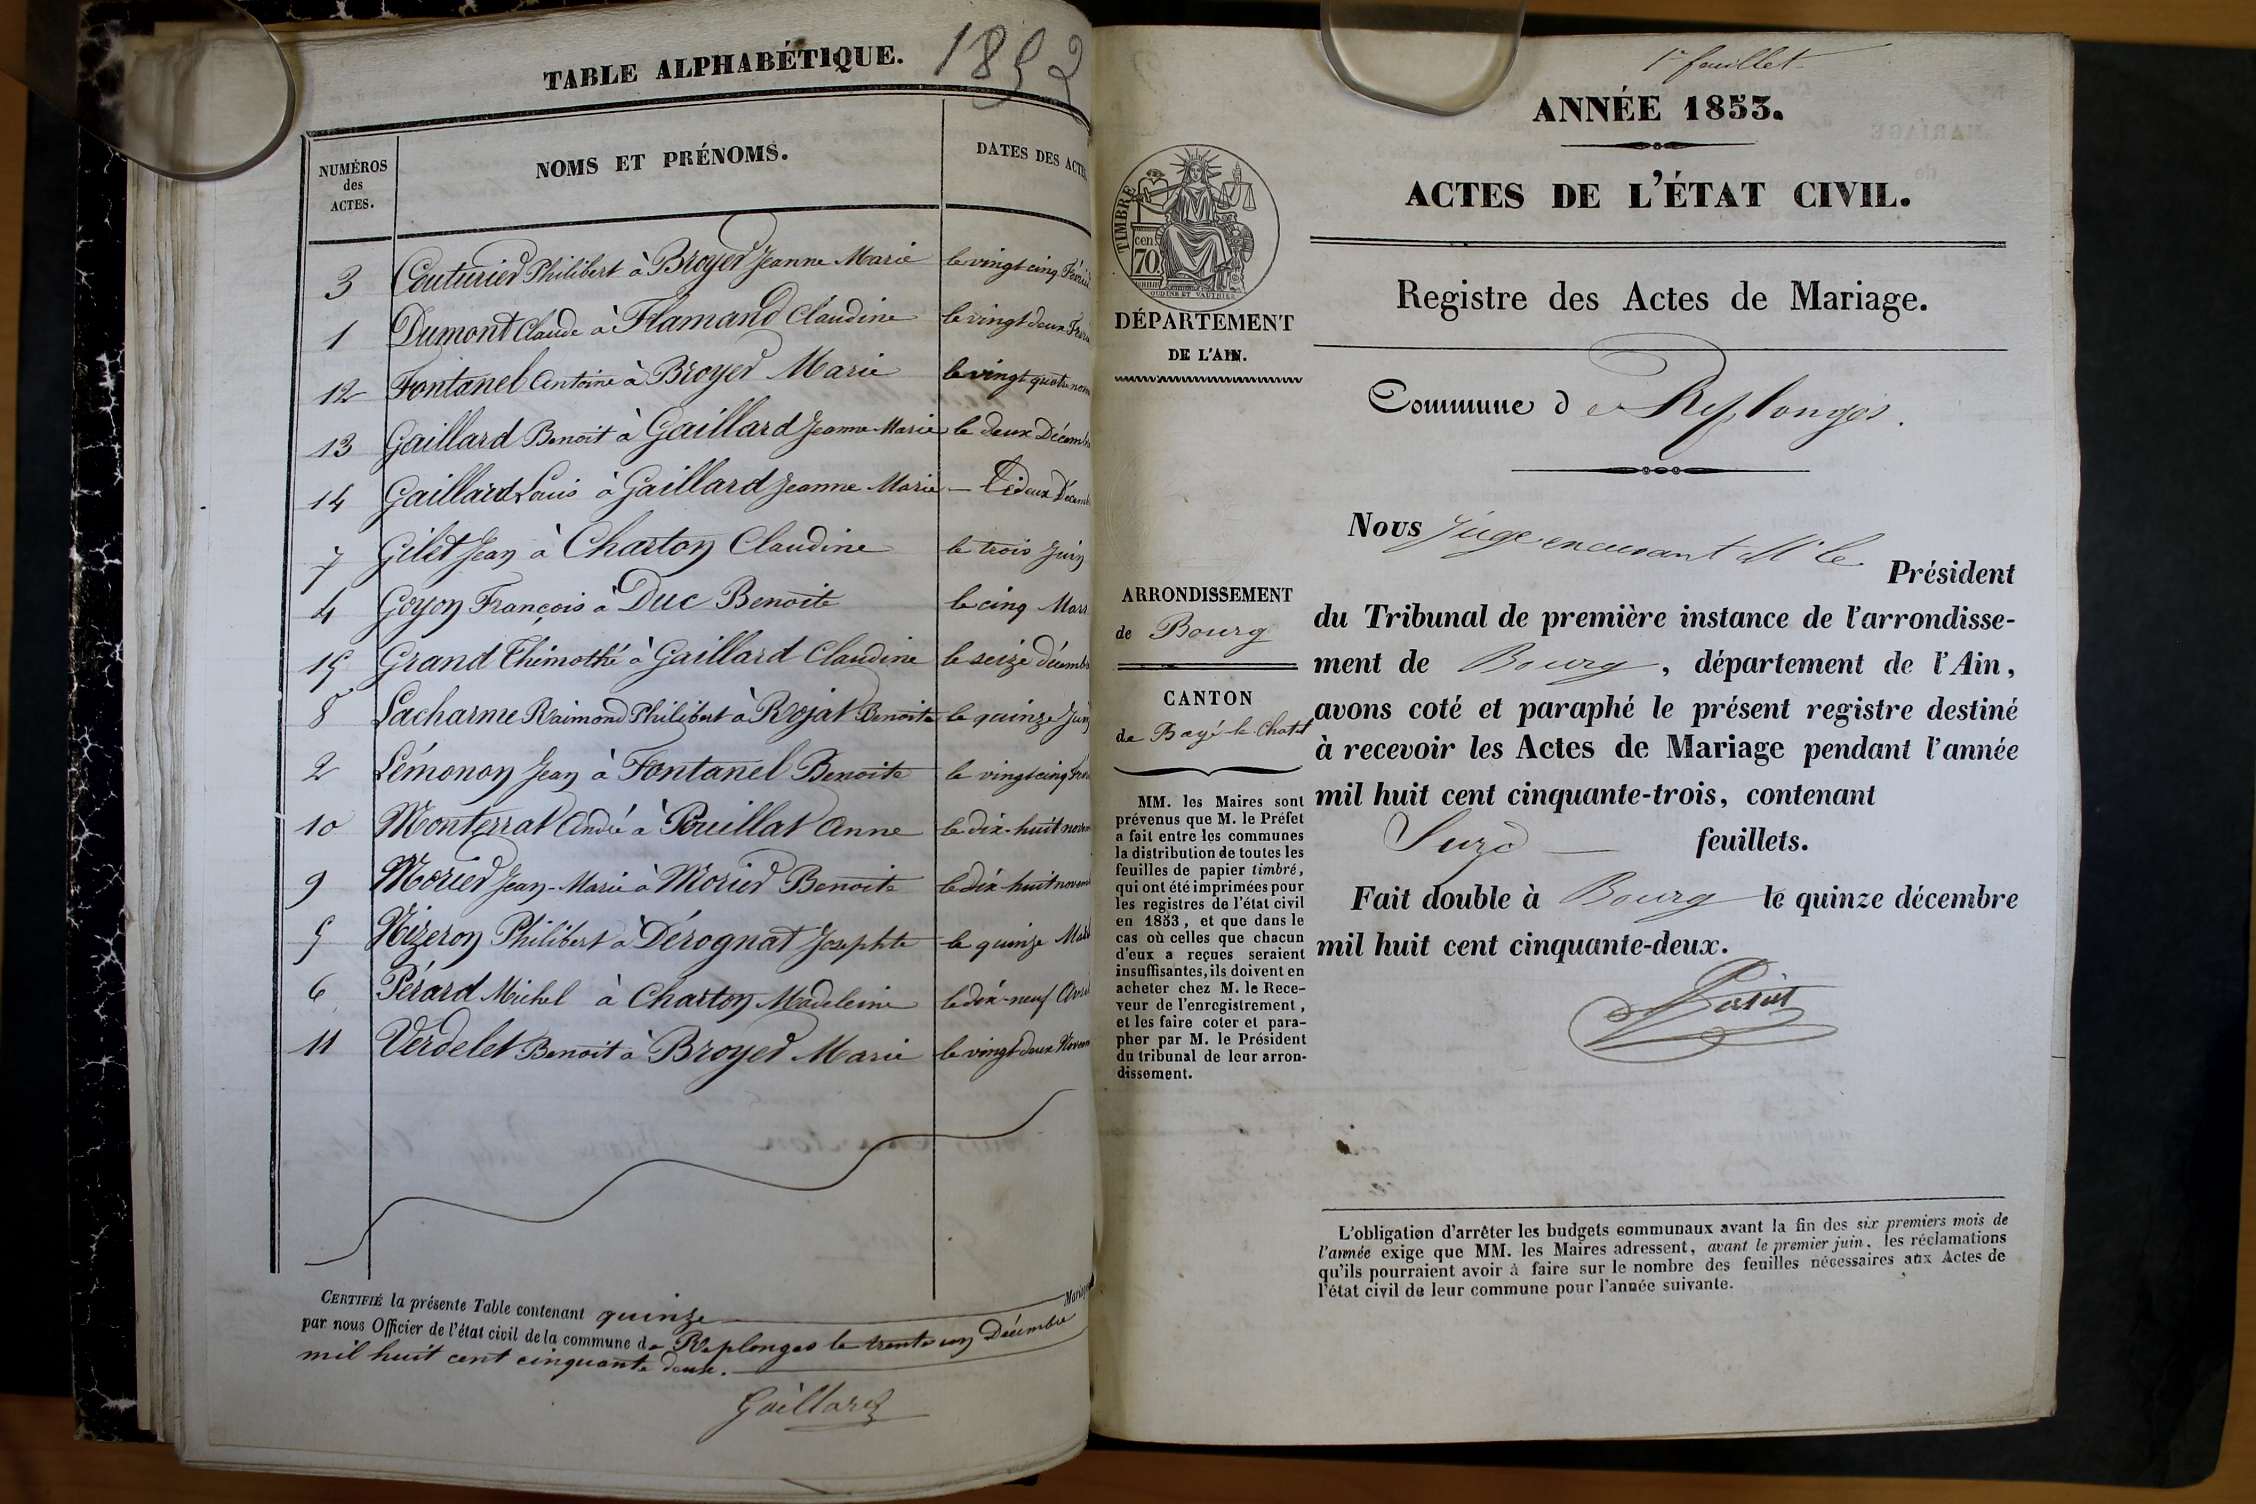 TABLE ALPHABÉTIQUE. 1852
NUMÉROS
des
ACTES.
NOMS ET PRÉNOMS.
DATES DES ACTES
3 Couturier Philibert à Broyer Jeanne Marie le vingt cinq Février
1 Dumont Claude à Flamand Claudine le vingt deux
12 Fontanel Antoine à Broyer Marie le vingt quatre nov
13 Gaillard Benoit à Gaillard Jeanne-Marie le deux Décemb
14 Gaillard Louis à Gaillard Jeanne Marie – le deux Décemb
7 Gilet Jean à Charton Claudine le trois Juin
4 Goyon François à Duc Benoite le cinq Mars
15 Grand Thémothé à Gaillard Claudine le seize décembre
8 Lacharme Raimond Philibert à Rojat Benoite le quinze Juin
2 Lémonon Jean à Fontanel Benoite le vingt cinq
10 Monterrat André à Pouillat Anne le dix-huit novem
9 Morier Jean-Marie à Morier Benoite le dix-huit novem
5 Nizeron Philibert à Dérognat Josephte le quinze Mars
6 Pérard Michel à Charton Madeleine le dix-neuf Avril
11 Verdelet Benoit à Broyer Marie le vingt-deux Novem
CERTIFIÉ la présente Table contenant quinze Mariages
par nous Officier de l'état civil de la commune de Replonges le trente un Décembre
mil huit cent cinquante deux.
Gaillard
1er feuillet
ANNÉE 1853.
ACTES DE L'ÉTAT CIVIL.
Registre des Actes de Mariage.
TIMBRE
cen.
70.
OUDINE ET VAUTHIER
DÉPARTEMENT
DE L'AIN.
Commune de Replonges.
ARRONDISSEMENT
de Bourg
CANTON
de Bagé-le-Chatel
MM. les Maires sont
prévenus que M. le Préfet
a fait entre les communes
la distribution de toutes les
feuilles de papier timbré,
qui ont été imprimées pour
les registres de l'état civil
en 1853, et que dans le
cas où celles que chacun
d'eux a reçues seraient
insuffisantes, ils doivent en
acheter chez M. le Rece-
veur de l'enregistrement,
et les faire coter et para-
pher par M. le Président
du tribunal de leur arron-
dissement.
Nous Juge encusant Mr le Président
du Tribunal de première instance de l'arrondisse-
ment de Bourg, département de l'Ain,
avons coté et paraphé le présent registre destiné
à recevoir les Actes de Mariage pendant l'année
mil huit cent cinquante-trois, contenant
feuillets.
Fait double à Bourg le quinze décembre
mil huit cent cinquante-deux.
L'obligation d'arrêter les budgets communaux avant la fin des six premiers mois de
l'année exige que MM. les Maires adressent, avant le premier juin, les réclamations
qu'ils pourraient avoir à faire sur le nombre des feuilles nécessaires aux Actes de
l'état civil de leur commune pour l'année suivante.